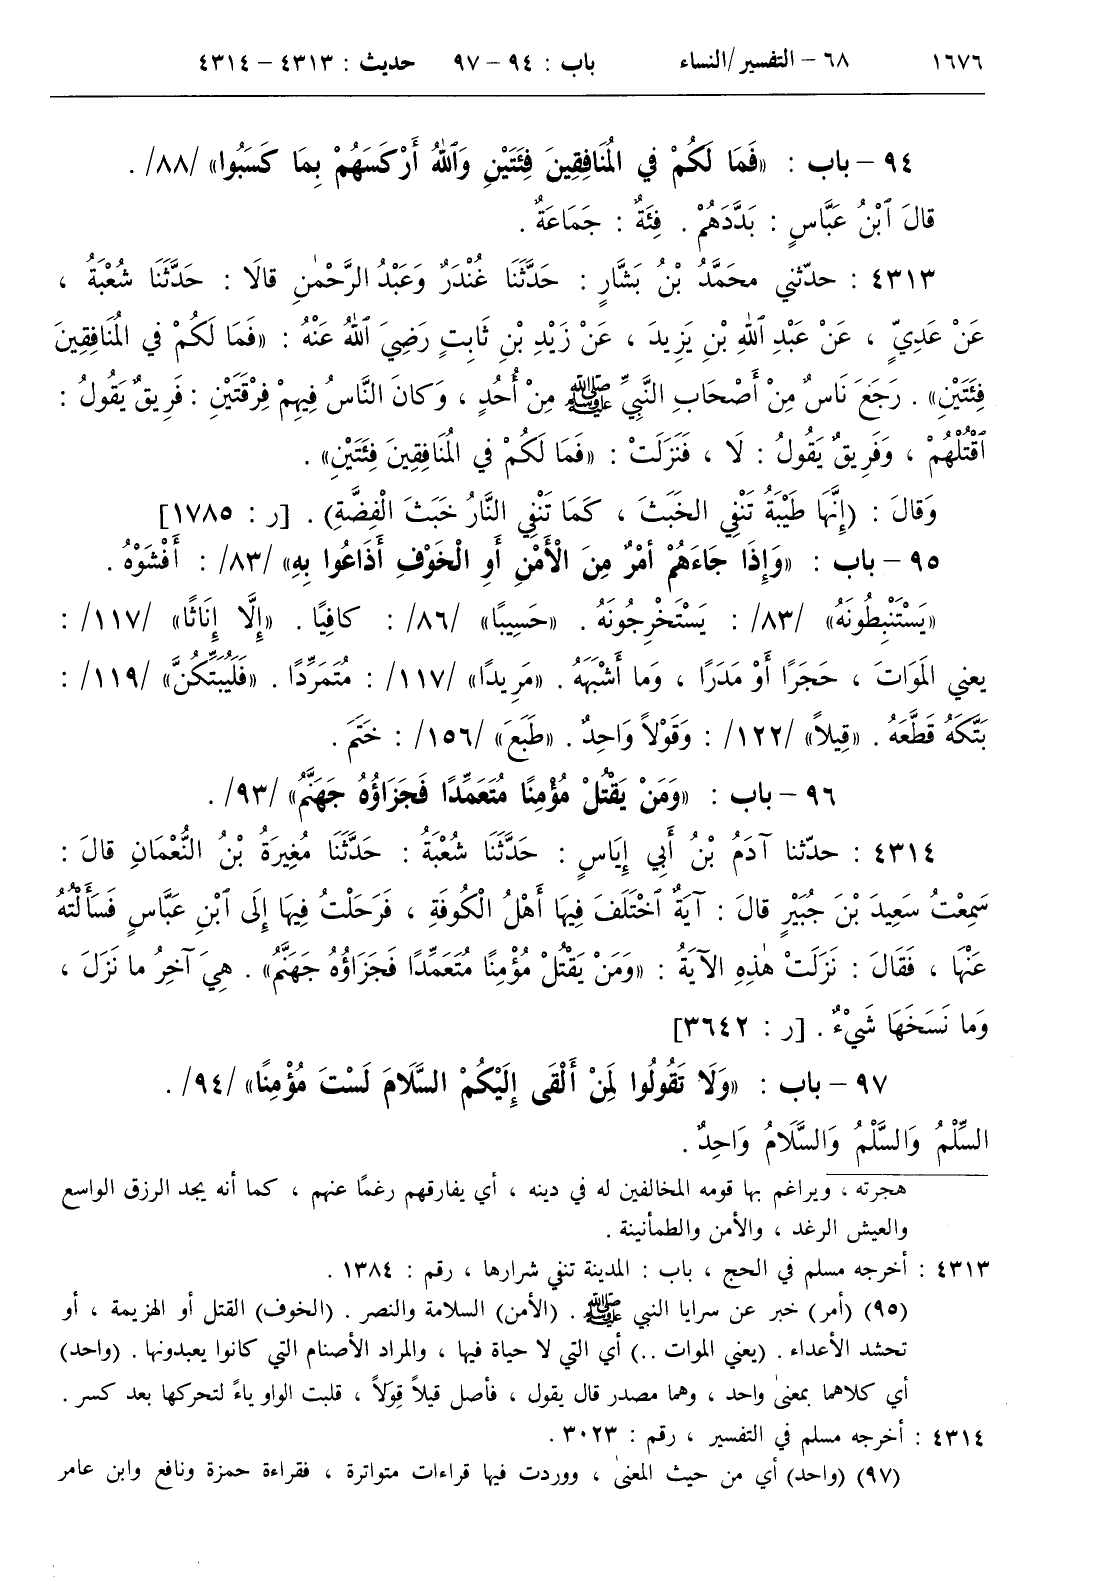 ١٦٧٦ ٦٨ – التفسير/النساء باب : ٩٤ – ٩٧ حديث : ٤٣١٣ – ٤٣١٤
٩٤ – باب : «فَمَا لَكُمْ في المُنَافِقِينَ فِئَتَيْنِ وَٱللهُ أَرْكَسَهُمْ بِمَا كَسَبُوا» /٨٨/ .
قالَ ٱبْنُ عَبَّاسٍ : بَدَّدَهُمْ . فِئَةٌ : جَمَاعَةٌ .
٤٣١٣ : حدّثني محَمَّدُ بْنُ بَشَّارٍ : حَدَّثَنَا غُنْدَرٌ وَعَبْدُ الرَّحْمٰنِ قالَا : حَدَّثَنَا شُعْبَةُ ،
عَنْ عَدِيٍّ ، عَنْ عَبْدِ ٱللهِ بْنِ يَزِيدَ ، عَنْ زَيْدِ بْنِ ثَابِتٍ رَضِيَ ٱللهُ عَنْهُ : «فَمَا لَكُمْ في المُنَافِقِينَ
فِئَتَيْنِ» . رَجَعَ نَاسٌ مِنْ أَصْحَابِ النَّبِيِّ ﷺ مِنْ أُحُدٍ ، وَكانَ النَّاسُ فِيهِمْ فِرْقَتَيْنِ : فَرِيقٌ يَقُولُ :
ٱقْتُلْهُمْ ، وَفَرِيقٌ يَقُولُ : لَا ، فَنَزَلَتْ : «فَمَا لَكُمْ في المُنَافِقِينَ فِئَتَيْنِ» .
وَقالَ : (إِنَّهَا طَيْبَةُ تَنْفِي الخَبَثَ ، كَمَا تَنْفِي النَّارُ خَبَثَ الْفِضَّةِ) . [ر : ١٧٨٥]
٩٥ – باب : «وَإِذَا جَاءَهُمْ أَمْرٌ مِنَ الْأَمْنِ أَوِ الْخَوْفِ أَذَاعُوا بِهِ» /٨٣/ : أَفْشَوْهُ .
«يَسْتَنْبِطُونَهُ» /٨٣/ : يَسْتَخْرِجُونَهُ . «حَسِيبًا» /٨٦/ : كافِيًا . «إِلَّا إِنَاثًا» /١١٧/ :
يعني المَوَاتَ ، حَجَرًا أَوْ مَدَرًا ، وَما أَشْبَهَهُ . «مَرِيدًا» /١١٧/ : مُتَمَرِّدًا . «فَلَيُبَتِّكُنَّ» /١١٩/ :
بَتَّكَهُ قَطَّعَهُ . «قِيلاً» /١٢٢/ : وَقَوْلاً وَاحِدٌ . «طَبَعَ» /١٥٦/ : خَتَمَ .
٩٦ – باب : «وَمَنْ يَقْتُلْ مُؤْمِنًا مُتَعَمِّدًا فَجَزَاؤُهُ جَهَنَّمُ» /٩٣/ .
٤٣١٤ : حدّثنا آدَمُ بْنُ أَبِي إِيَاسٍ : حَدَّثَنَا شُعْبَةُ : حَدَّثَنَا مُغِيرَةُ بْنُ النُّعْمَانِ قالَ :
سَمِعْتُ سَعِيدَ بْنَ جُبَيْرٍ قالَ : آيَةٌ ٱخْتَلَفَ فِيهَا أَهْلُ الْكُوفَةِ ، فَرَحَلْتُ فِيهَا إِلَى ٱبْنِ عَبَّاسٍ فَسَأَلْتُهُ
عَنْهَا ، فَقَالَ : نَزَلَتْ هٰذِهِ الآيَةُ : «وَمَنْ يَقْتُلْ مُؤْمِنًا مُتَعَمِّدًا فَجَزَاؤُهُ جَهَنَّمُ» . هِيَ آخِرُ ما نَزَلَ ،
وَما نَسَخَهَا شَيْءٌ . [ر : ٣٦٤٢]
٩٧ – باب : «وَلَا تَقُولُوا لِمَنْ أَلْقَى إِلَيْكُمْ السَّلَامَ لَسْتَ مُؤْمِنًا» /٩٤/ .
السِّلْمُ وَالسَّلَمُ وَالسَّلَامُ وَاحِدٌ .
هجرته ، ويراغم بها قومه المخالفين له في دينه ، أي يفارقهم رغمًا عنهم ، كما أنه يجد الرزق الواسع
والعيش الرغد ، والأمن والطمأنينة .
٤٣١٣ : أخرجه مسلم في الحج ، باب : المدينة تنفي شرارها ، رقم : ١٣٨٤ .
(٩٥) (أمر) خبر عن سرايا النبي ﷺ . (الأمن) السلامة والنصر . (الخوف) القتل أو الهزيمة ، أو
تحشد الأعداء . (يعني الموات ..) أي التي لا حياة فيها ، والمراد الأصنام التي كانوا يعبدونها . (واحد)
أي كلاهما بمعنىً واحد ، وهما مصدر قال يقول ، فأصل قيلاً قِوَلاً ، قلبت الواو ياءً لتحركها بعد كسر .
٤٣١٤ : أخرجه مسلم في التفسير ، رقم : ٣٠٢٣ .
(٩٧) (واحد) أي من حيث المعنىٰ ، ووردت فيها قراءات متواترة ، فقراءة حمزة ونافع وابن عامر